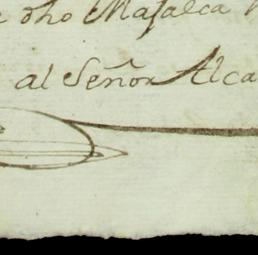 dho Masalca
al Señor Alca